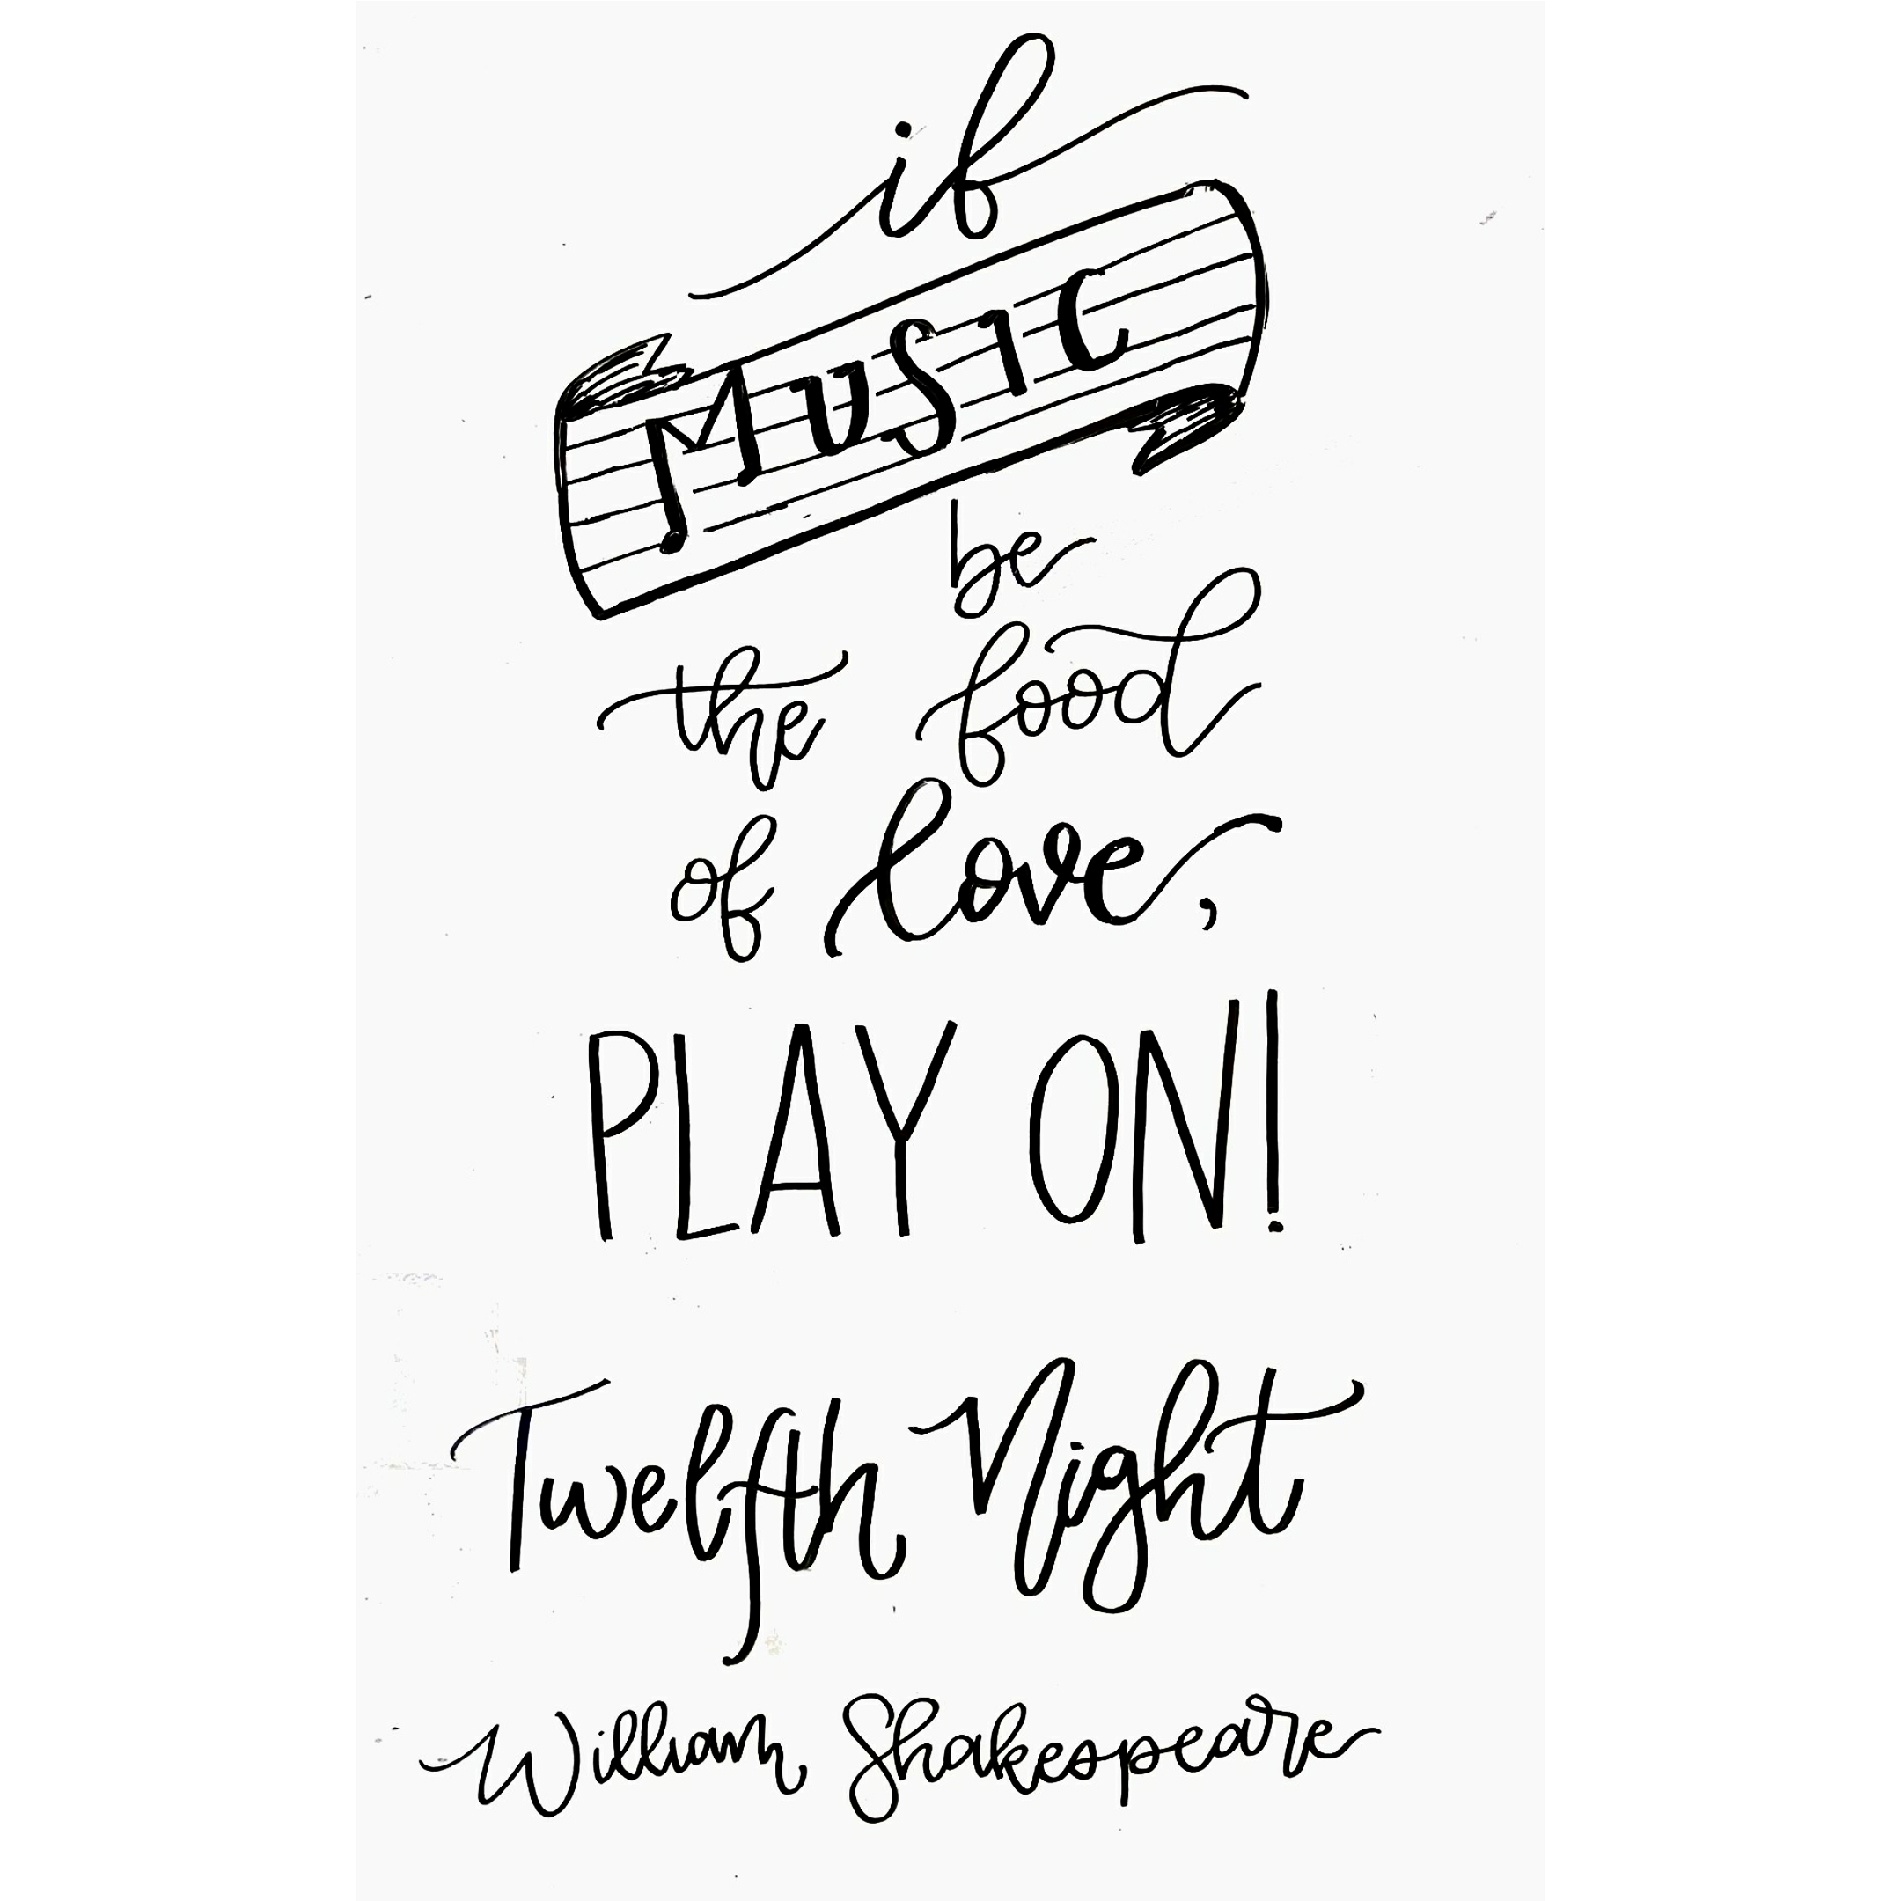 if
MUSIC
be
the food
of love,
PLAY ON!
Twelfth Night
William Shakespeare